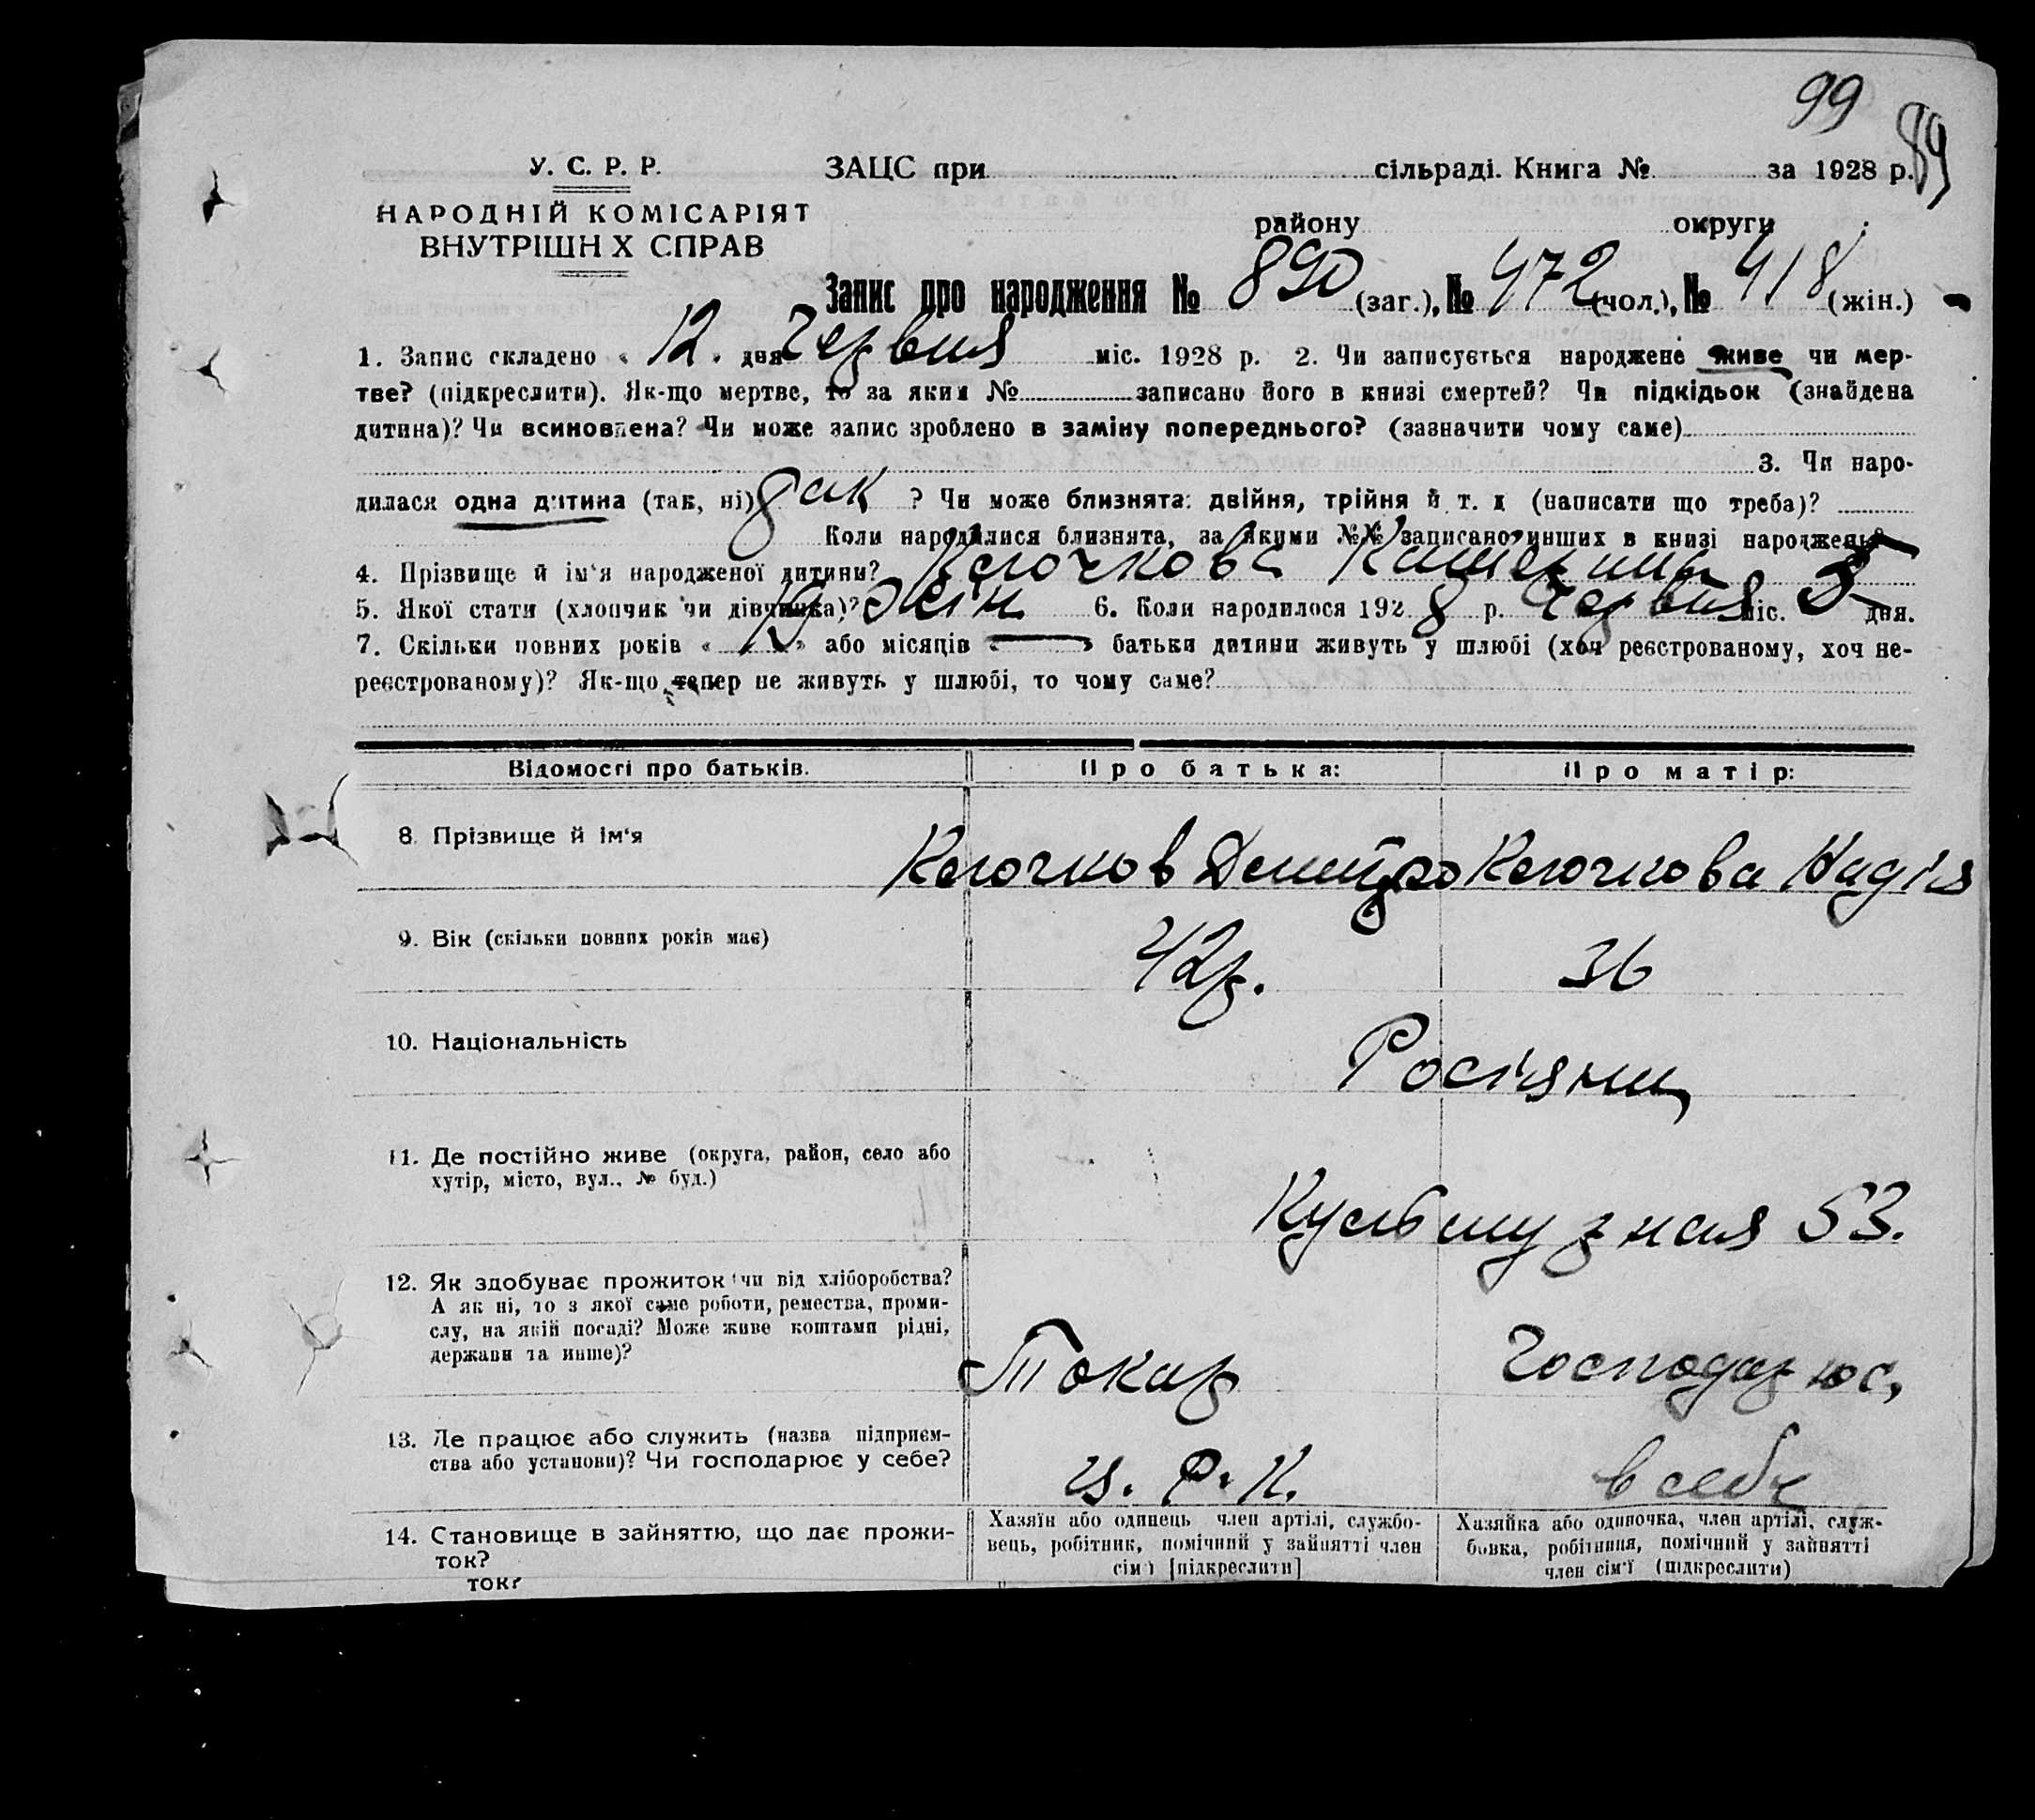 99
89
У. С. Р. Р.
ЗАЦС при сільраді. Книга № за 1928 р.
НАРОДНІЙ КОМІСАРІЯТ
ВНУТРІШН Х СПРАВ
району округи
Запис про народження № 890 (заг.), № 472 (чол.), № 418 (жін.)
1. Запис складено « 12 » дня Червня міс. 1928 р. 2. Чи записується народжене живе чи мер-
тве? (підкреслити). Як-що мертве, то за яким № записано його в книзі смертей? Чи підкідьок (знайдена
дитина)? Чи всиновлена? Чи може запис зроблено в заміну попереднього? (зазначити чому саме)
3. Чи наро-
дилася одна дитина (так, ні) так ? Чи може близнята: двійня, трійня й т. д (написати що треба)?
Коли народилися близнята, за якими №№ записано инших в книзі народжень?
4. Прізвище й ім‘я народженої дитини? Клочкова Катерина
5. Якої стати (хлопчик чи дівчинка)? жін 6. Коли народилося 192 8 р. Червня міс. 5 дня.
7. Скільки повних років « » або місяців « — » батьки дитини живуть у шлюбі (хоч реєстрованому, хоч не-
реєстрованому)? Як-що тепер не живуть у шлюбі, то чому саме?
Відомості про батьків. Про батька: Про матір:
8. Прізвище й ім‘я Клочков Дмитро Клочкова Надія
9. Вік (скільки повних років має) 42р. 36
10. Національність Росіяни
11. Де постійно живе (округа, район, село або
хутір, місто, вул., № буд.)
53.
12. Як здобуває прожиток: чи від хліборобства?
А як ні, то з якої саме роботи, ремества, проми-
слу, на якій посаді? Може живе коштами рідні,
держави та инше)?
Токар Господарює,
13. Де працює або служить (назва підприєм-
ства або установи)? Чи господарює у себе?
Р. К. в себе
14. Становище в зайняттю, що дає прожи-
ток?
ток?
Хазяїн або одинець член артілі, службо-
вець, робітник, помічний у зайнятті член
сім‘ї [підкреслити]
Хазяйка або одиночка, член артілі, служ-
бовка, робітниця, помічний у зайнятті
член сім‘ї (підкреслити)